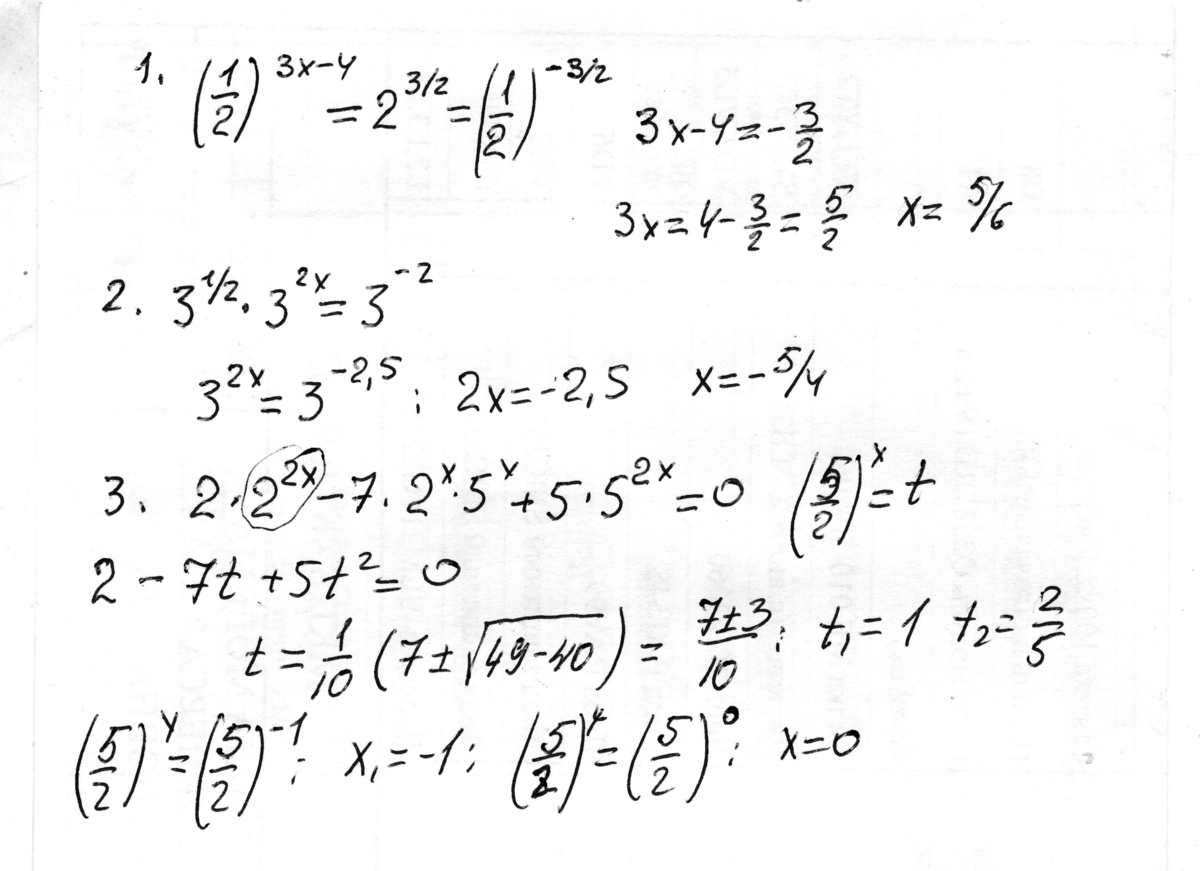 1. (1/2)^(3x-4) = 2^(3/2) = (1/2)^(-3/2) 3x-4=-3/2
3x=4-3/2=5/2 x=5/6
2. 3^(1/2)·3^(2x)=3^(-2)
3^(2x)=3^(-2,5); 2x=-2,5 x=-5/4
3. 2·2^(2x)-7·2^x·5^x+5·5^(2x)=0 (5/2)^x=t
2-7t+5t^2=0
t=1/10(7±√(49-40))=(7±3)/10; t₁=1 t₂=2/5
(5/2)^x=(5/2)^(-1); x₁=-1; (5/2)^x=(5/2)^0; x=0